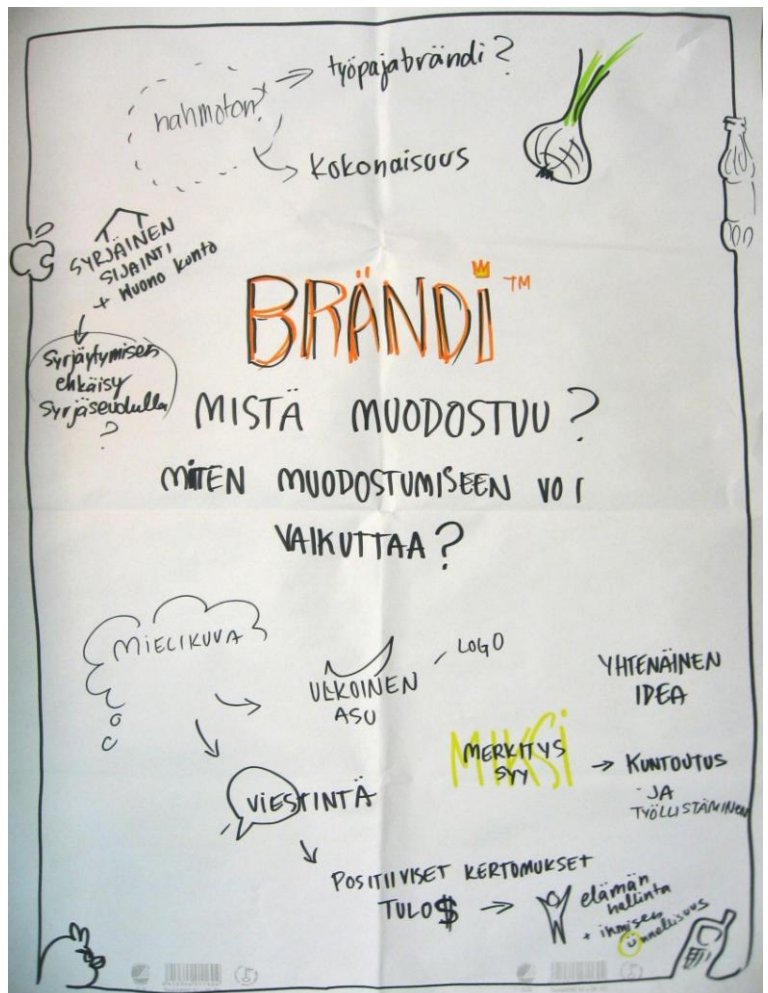 hahmoton?
työpajabrändi?
kokonaisuus
SYRJÄINEN
SIJAINTI
+ HUONO KUNTO
Syrjäytymisen
ehkäisy
Syrjäseudulla
?
BRÄNDI™
MISTÄ MUODOSTUU?
MITEN MUODOSTUMISEEN VOI
VAIKUTTAA?
MIELIKUVA
ULKOINEN
ASU
LOGO
YHTENÄINEN
IDEA
MIKSI
MERKITYS
SYY
KUNTOUTUS
JA
TYÖLLISTÄMINEN
VIESTINTÄ
POSITIIVISET KERTOMUKSET
TULO$
elämän
hallinta
+ ihmisen
onnellisuus